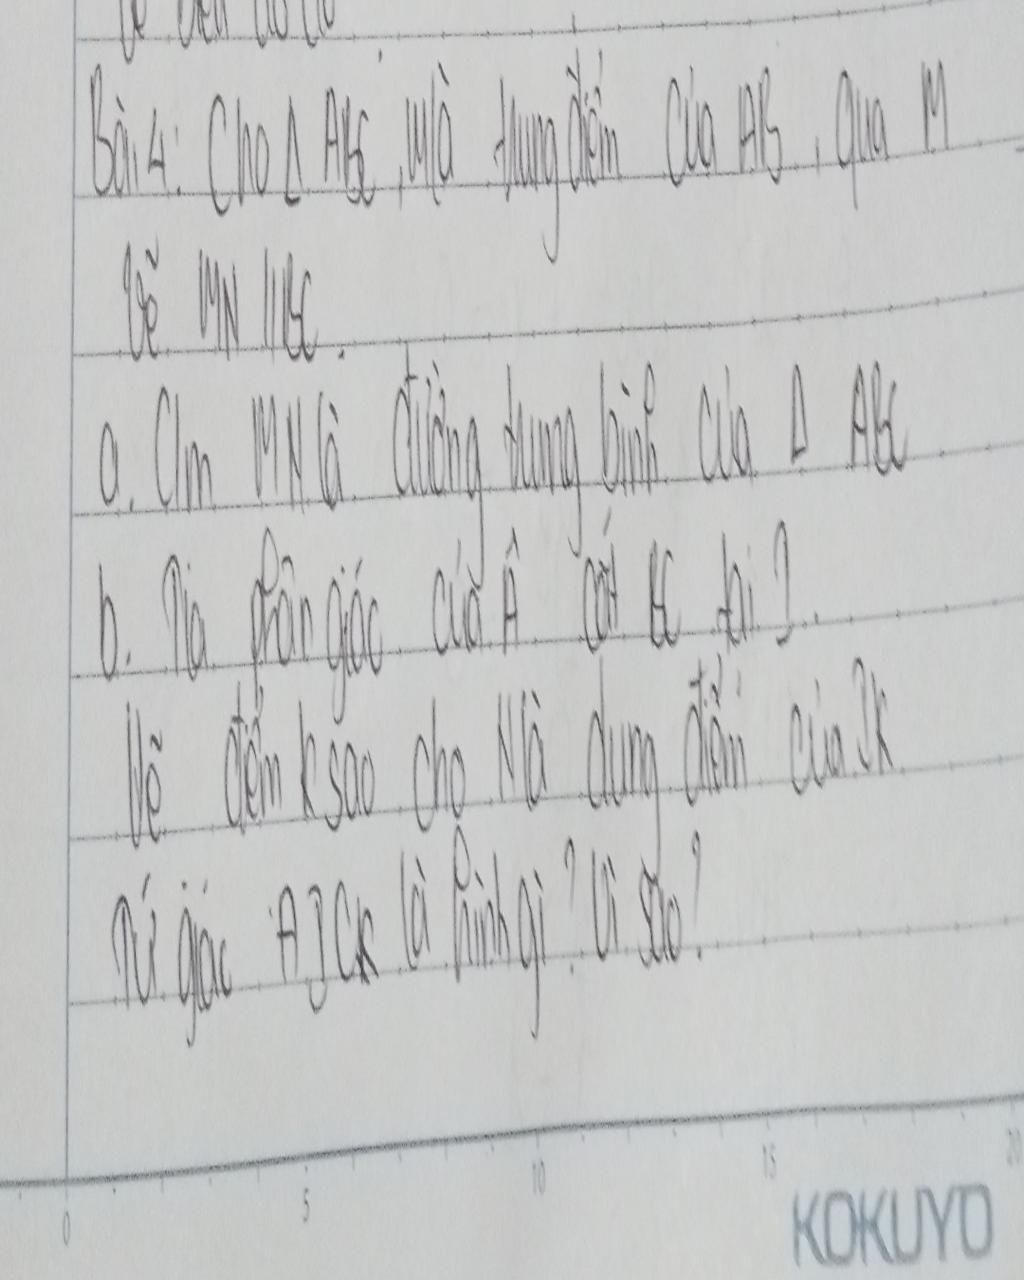 Bài 4: Cho Δ ABC, M là trung điểm của AB, qua M
Vẽ MN // BC.
a. Cm MN là đường trung bình của Δ ABC
b. Tia phân giác của Â cắt BC tại I.
Vẽ điểm K sao cho N là dung điểm của IK
Tứ giác AICK là hình gì? Vì sao?
0 5 10 15 20
KOKUYO